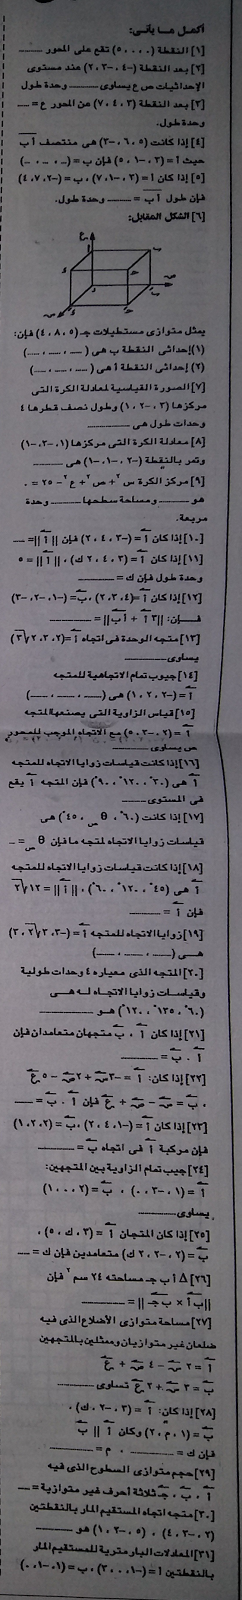 أكمل مما يأتى:
[١] النقطة (٠، ٠، ٥) تقع على المحور ........
[٢] بعد النقطة (-٤، -٣، ٢) عند مستوى
الإحداثيات ص ع يساوى ........ وحدة طول
[٣] بعد النقطة (٣، ٤، ٧) عن المحور ع = ....
وحدة طول.
[٤] إذا كانت (٥، ٦، -٣) هى منتصف أ ب
حيث أ = (٣، -١، ٥) فإن ب = (...، ...، ...)
[٥] إذا كان أ = (٣، -١، ٧)، ب = (-٢، ٧، ٤)
فإن طول أ ب = ........ وحدة طول.
[٦] الشكل المقابل:
يمثل متوازى مستطيلات جـ (٥، ٨، ٤) فإن:
(١) إحداثى النقطة ب هى (....، ....، ....)
(٢) إحداثى النقطة أ هى (....، ....، ....)
[٧] الصورة القياسية لمعادلة الكرة التى
مركزها (٣، -٢، ١) وطول نصف قطرها ٤
وحدات طول هى ........
[٨] معادلة الكرة التى مركزها (١، -٣، -١)
وتمر بالنقطة (-٢، -١، -١) هى ........
[٩] مركز الكرة س٢ + ص٢ + ع٢ - ٢٥ = ٠
هو ........ ومساحة سطحها ........ وحدة
مربعة.
[١٠] إذا كان أ = (-٣، ٤، ٢) فإن || أ || = ....
[١١] إذا كان أ = (٣، ٤، ٢ ك)، || أ || = ٥
وحدة طول فإن ك = ........
[١٢] إذا كان أ = (٤، ٣، ٢)، ب = (-١، -٢، -٣)
فإن: || ٣ أ + ب || = ........
[١٣] متجه الوحدة فى اتجاه أ = (٢، ٢، ٢√٣)
يساوى ........
[١٤] جيوب تمام الاتجاهية للمتجه
أ = (-٢، ٢، ١) هى (....، ....، ....)
[١٥] قياس الزاوية التى يصنعها المتجه
أ = (٢، -٣، ٥) مع الاتجاه الموجب للمحور
ص يساوى ........
[١٦] إذا كانت قياسات زوايا الاتجاه للمتجه
أ هى (٣٠°، ١٢٠°، ٩٠°) فإن المتجه أ يقع
فى المستوى ........
[١٧] إذا كانت (٦٠°، θص، ٤٥°) هى
قياسات زوايا الاتجاه لمتجه ما فإن θص = ...
[١٨] إذا كانت قياسات زوايا الاتجاه للمتجه
أ هى (٤٥°، ١٢٠°، ٦٠°)، || أ || = ١٢√٢
فإن أ = ........
[١٩] زوايا الاتجاه للمتجه أ = (-٣، ٣√٢، ٣)
هى (....، ....، ....)
[٢٠] المتجه الذى معياره ٤ وحدات طولية
وقياسات زوايا الاتجاه له هى
(٦٠°، ١٣٥°، ١٢٠°) هو ........
[٢١] إذا كان أ، ب متجهان متعامدان فإن
أ . ب = ........
[٢٢] إذا كان: أ = -٣ س + ٢ ص - ٥ ع
، ب = س - ص + ع فإن أ . ب = ....
[٢٣] إذا كان أ = (-١، ٤، ٢)، ب = (٢، ٢، ١)
فإن مركبة أ فى اتجاه ب = ........
[٢٤] جيب تمام الزاوية بين المتجهين:
أ = (١، -٣، ٠)، ب = (٢، ٠، ١)
يساوى ........
[٢٥] إذا كان المتجهان أ = (٣، ك، ٥)،
ب = (٢، -٢، ٢ ك) متعامدين فإن ك = ....
[٢٦] Δ أ ب جـ مساحته ٢٤ سم٢ فإن
|| ب أ × ب جـ || = ........
[٢٧] مساحة متوازى الأضلاع الذى فيه
ضلعان غير متوازيان وممثلين بالمتجهين
أ = ٢ س - ٤ ص + ع
ب = ٣ ص + ٢ ع تساوى ........
[٢٨] إذا كان: أ = (٣، -٢، ك)،
ب = (١، م، ٢) وكان أ || ب
فإن ك = ........، م = ........
[٢٩] حجم متوازى السطوح الذى فيه
أ، ب، جـ ثلاثة أحرف غير متوازية = ....
[٣٠] متجه اتجاه المستقيم المار بالنقطتين
(٢، -٣، ٤)، (٥، -٢، ١) هو ........
[٣١] المعادلات البارمترية للمستقيم المار
بالنقطتين أ = (-١، ٠، ٣)، ب = (١، -١، ٠)